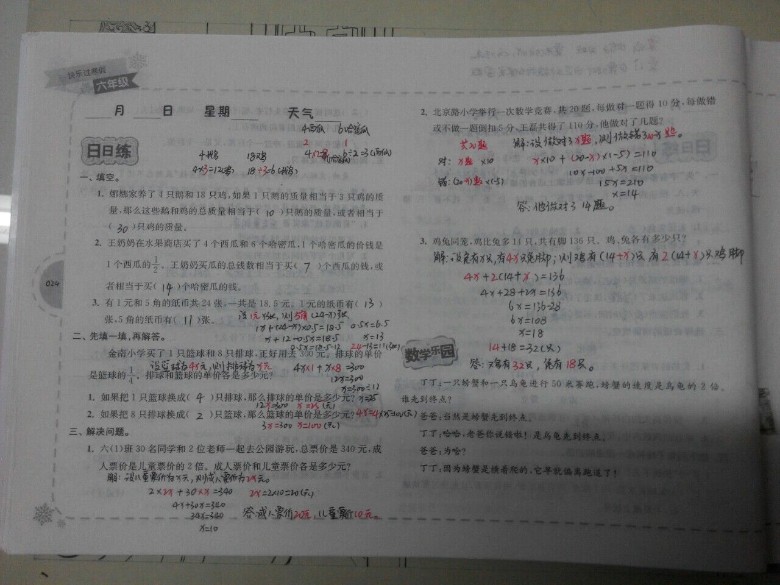 快乐过寒假
六年级
月 日 星期 天气
日日练
4只鹅 18只鸡
4×3=12(只) 18÷3=6(只鹅)
一、填空。
1. 奶奶家养了4只鹅和18只鸡,如果1只鹅的质量相当于3只鸡的质
量,那么这些鹅和鸡的总质量相当于( 10 )只鹅的质量,或者相当于
( 30 )只鸡的质量。
2. 王奶奶在水果商店买了4个西瓜和6个哈密瓜,1个哈密瓜的价钱是
1个西瓜的1/2。王奶奶买瓜的总钱数相当于买( 7 )个西瓜的钱,或
者相当于买( 14 )个哈密瓜的钱。
3. 有1元和5角的纸币共24张,一共是18.5元。1元的纸币有( 13 )
张,5角的纸币有( 11 )张。
x+12-0.5x=18.5
x=13
024
二、先填一填,再解答。
金南小学买了1只篮球和8只排球,正好用去300元。排球的单价
是篮球的1/4。排球和篮球的单价各是多少元?
4x×1+x×8=300
12x=300
1. 如果把1只篮球换成( 4 )只排球,那么排球的单价是多少元?
2. 如果把8只排球换成( 2 )只篮球,那么篮球的单价是多少元?
3x=300 x=100(元)
三、解决问题。
1. 六(1)班30名同学和2位老师一起去公园游玩,总票价是340元,成
人票价是儿童票价的2倍。成人票价和儿童票价各是多少元?
解:设儿童票价为x元,则成人票价为2x元。
2×2x+30×x=340 2x=2×10=20(元)
4x+30x=340
34x=340
x=10
答:成人票价20元,儿童票价10元。
2. 北京路小学举行一次数学竞赛,共20题,每做对一题得10分,每做错
或不做一题倒扣5分,王磊共得了110分,他做对了几题?
共20题
对: x题 ×10
x×10+(20-x)×(-5)=110
错:(20-x)题×(-5)
15x=210
x=14
答:他做对了14题。
3. 鸡兔同笼,鸡比兔多14只,共有脚136只。鸡、兔各有多少只?
解:设兔有x只,有4x只兔脚;则鸡有(14+x)只,有2(14+x)只鸡脚
4x+2(14+x)=136
4x+28+2x=136
6x=136-28
6x=108
x=18
14+18=32(只)
答:鸡有32只,兔有18只。
数学乐园
丁丁:一只螃蟹和一只乌龟进行50米赛跑,螃蟹的速度是乌龟的2倍。
谁先到终点?
爸爸:当然是螃蟹先到终点。
丁丁:哈哈,老爸你说错啦!是乌龟先到终点。
爸爸:为啥?
丁丁:因为螃蟹是横着爬的,它早就偏离跑道了!